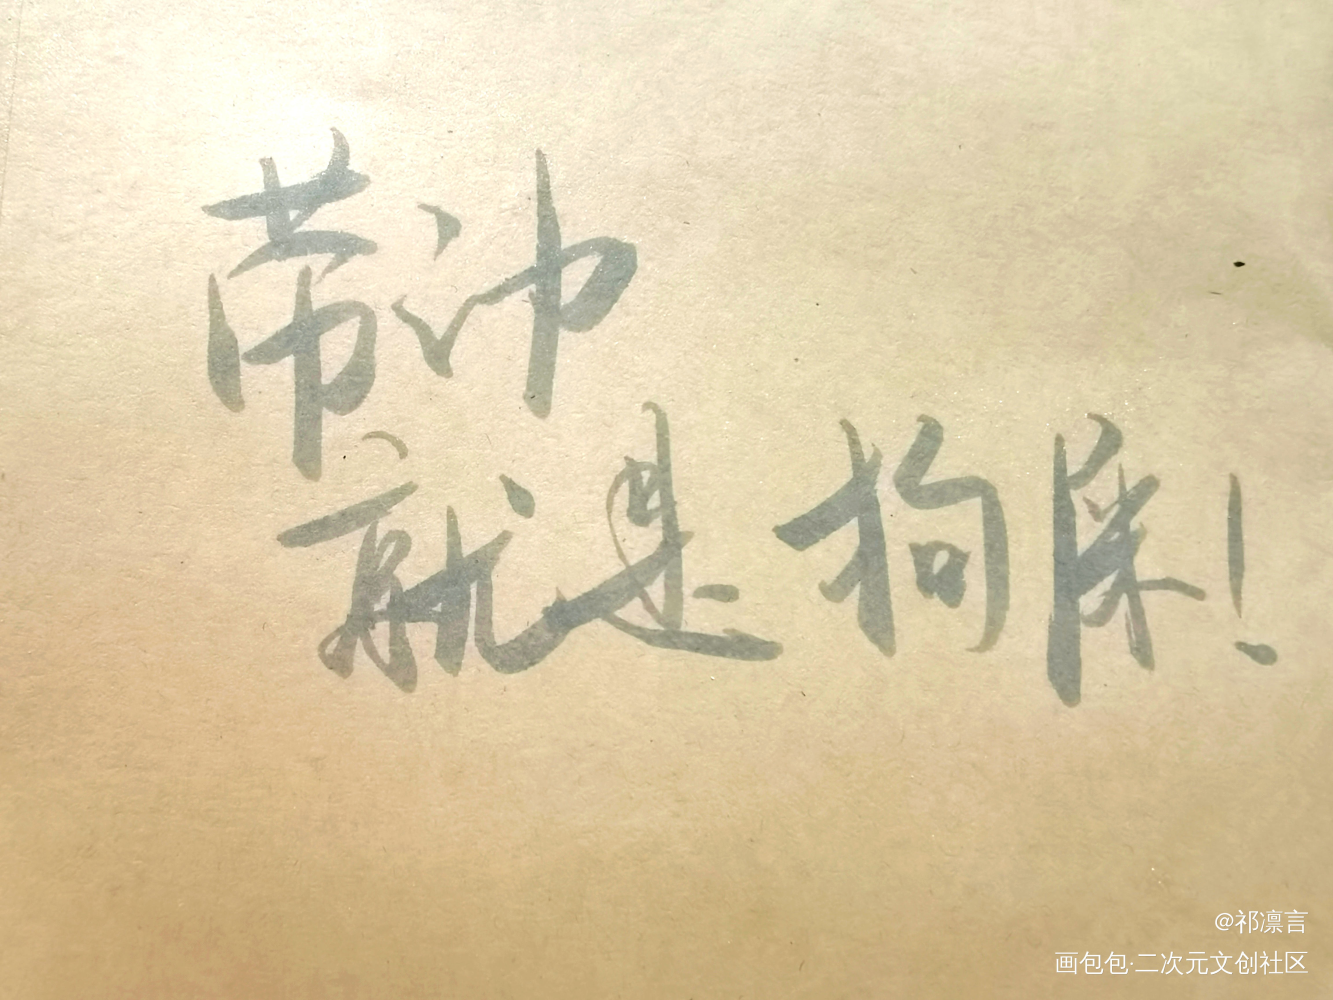 带帅
就是狗屎！
@祁凛言
画包包·二次元文创社区